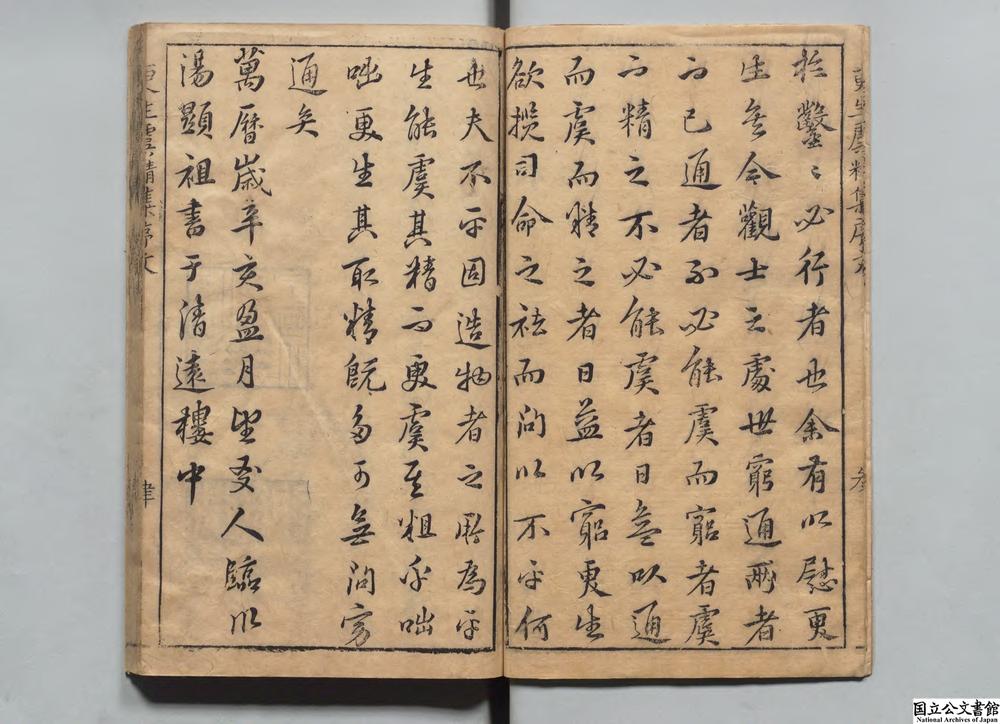 更生虞精集序文
叁
於鑿〻必行者也余有以慰更
生矣今觀士之處世窮通兩者
而已通者不必能虞而窮者虞
而精之不必能虞者日益以通
而虞而精之者日益以窮更生
欲攬司命之袪而问以不平何
也夫不平固造物者之所為平
生能虞其精而更虞其粗乎咄
咄更生其取精既多可無问窮
通矣
萬曆歲辛亥盈月望友人臨川
湯顯祖書于清遠樓中
更生虞精集序文
肆
国立公文書館
National Archives of Japan